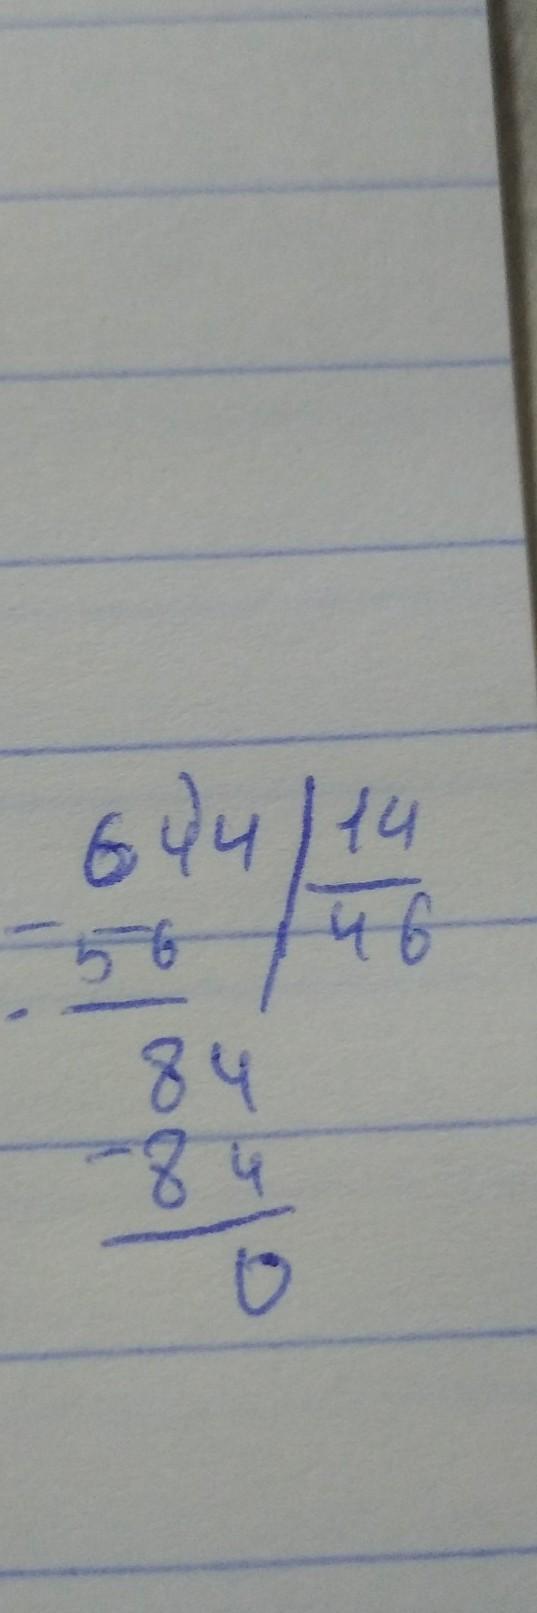 644 14
- 56 46
84
- 84
0